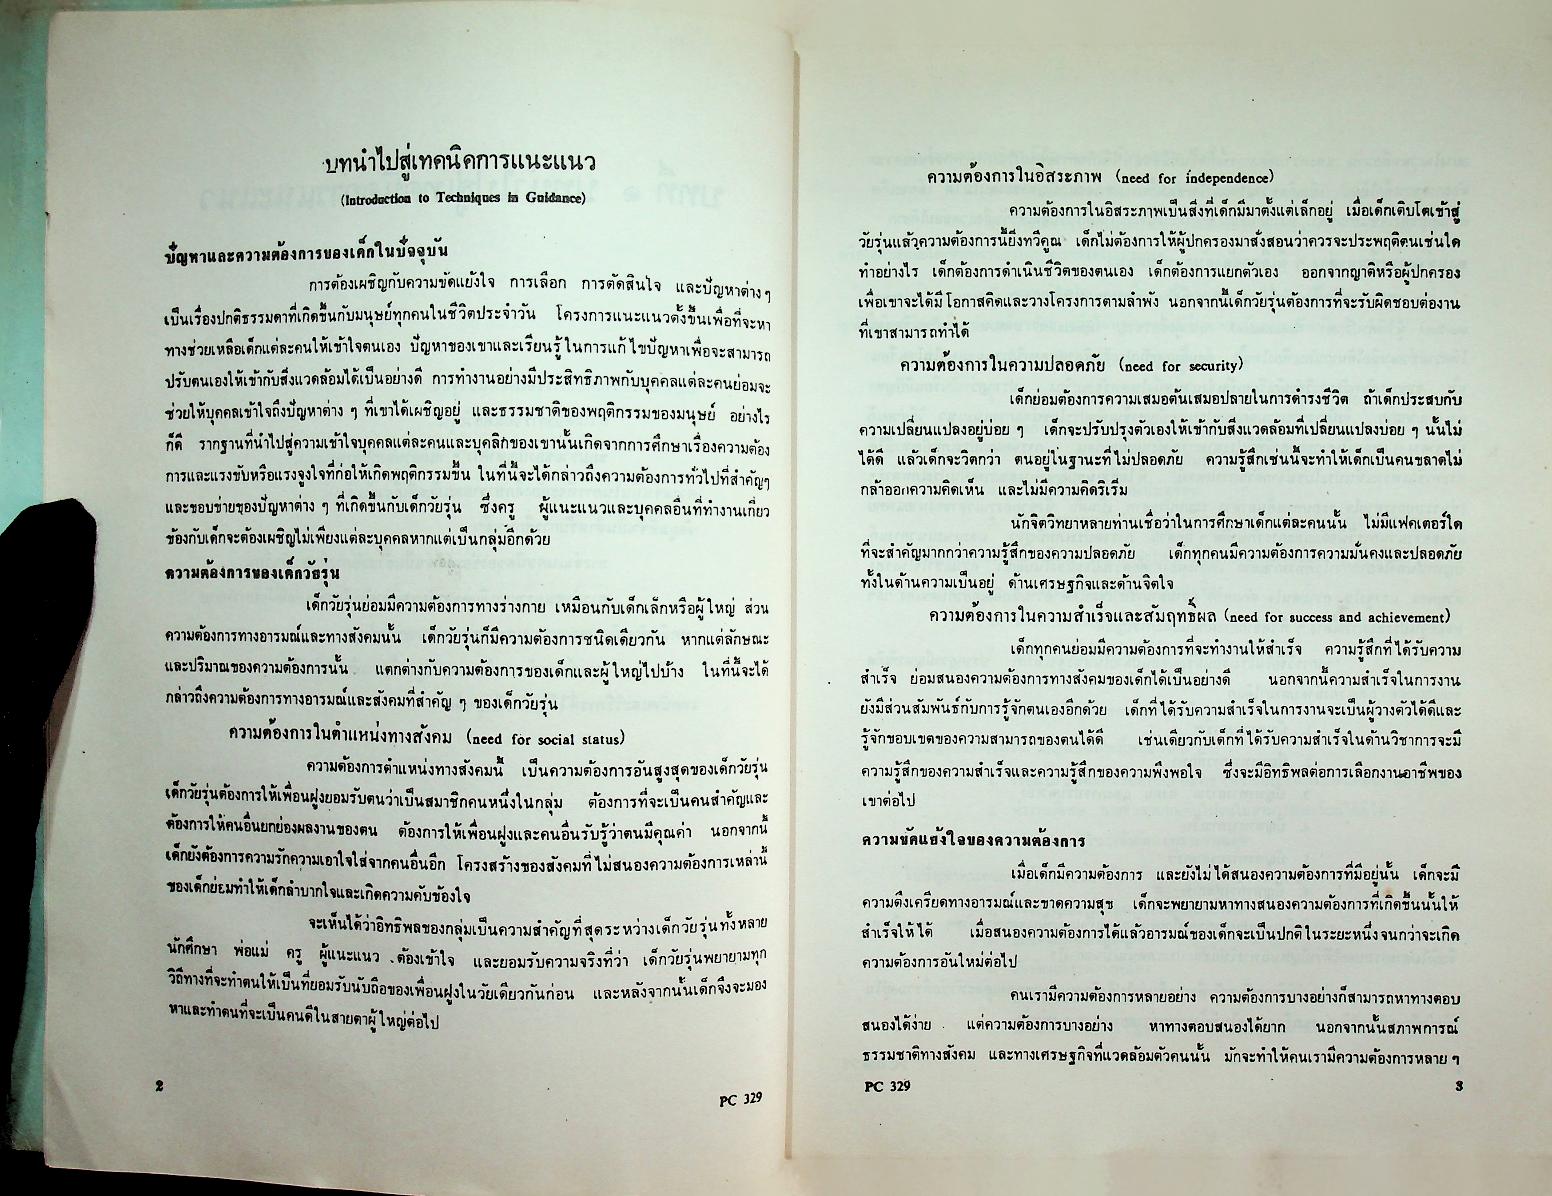 บทนำไปสู่เทคนิคการแนะแนว
(Introduction to Techniques in Guidance)
ปัญหาและความต้องการของเด็กในปัจจุบัน
การต้องเผชิญกับความขัดแย้งใจ การเลือก การตัดสินใจ และปัญหาต่างๆ
เป็นเรื่องปกติธรรมดาที่เกิดขึ้นกับมนุษย์ทุกคนในชีวิตประจำวัน โครงการแนะแนวตั้งขึ้นเพื่อที่จะหา
ทางช่วยเหลือเด็กแต่ละคนให้เข้าใจตนเอง ปัญหาของเขาและเรียนรู้ในการแก้ไขปัญหาเพื่อจะสามารถ
ปรับตนเองให้เข้ากับสิ่งแวดล้อมได้เป็นอย่างดี การทำงานอย่างมีประสิทธิภาพกับบุคคลแต่ละคนย่อมจะ
ช่วยให้บุคคลเข้าใจถึงปัญหาต่าง ๆ ที่เขาได้เผชิญอยู่ และธรรมชาติของพฤติกรรมของมนุษย์ อย่างไร
ก็ดี รากฐานที่นำไปสู่ความเข้าใจบุคคลแต่ละคนและบุคลิกของเขานั้นเกิดจากการศึกษาเรื่องความต้อง
การและแรงขับหรือแรงจูงใจที่ก่อให้เกิดพฤติกรรมขึ้น ในที่นี้จะได้กล่าวถึงความต้องการทั่วไปที่สำคัญๆ
และขอบข่ายของปัญหาต่าง ๆ ที่เกิดขึ้นกับเด็กวัยรุ่น ซึ่งครู ผู้แนะแนวและบุคคลอื่นที่ทำงานเกี่ยว
ข้องกับเด็กจะต้องเผชิญไม่เพียงแต่ละบุคคลหากแต่เป็นกลุ่มอีกด้วย
ความต้องการของเด็กวัยรุ่น
เด็กวัยรุ่นย่อมมีความต้องการทางร่างกาย เหมือนกับเด็กเล็กหรือผู้ใหญ่ ส่วน
ความต้องการทางอารมณ์และทางสังคมนั้น เด็กวัยรุ่นก็มีความต้องการชนิดเดียวกัน หากแต่ลักษณะ
และปริมาณของความต้องการนั้น แตกต่างกับความต้องการของเด็กและผู้ใหญ่ไปบ้าง ในที่นี้จะได้
กล่าวถึงความต้องการทางอารมณ์และสังคมที่สำคัญ ๆ ของเด็กวัยรุ่น
ความต้องการในตำแหน่งทางสังคม (need for social status)
ความต้องการตำแหน่งทางสังคมนี้ เป็นความต้องการอันสูงสุดของเด็กวัยรุ่น
เด็กวัยรุ่นต้องการให้เพื่อนฝูงยอมรับตนว่าเป็นสมาชิกคนหนึ่งในกลุ่ม ต้องการที่จะเป็นคนสำคัญและ
ต้องการให้คนอื่นยกย่องผลงานของตน ต้องการให้เพื่อนฝูงและคนอื่นรับรู้ว่าตนมีคุณค่า นอกจากนี้
เด็กยังต้องการความรักความเอาใจใส่จากคนอื่นอีก โครงสร้างของสังคมที่ไม่สนองความต้องการเหล่านี้
ของเด็กย่อมทำให้เด็กลำบากใจและเกิดความคับข้องใจ
จะเห็นได้ว่าอิทธิพลของกลุ่มเป็นความสำคัญที่สุดระหว่างเด็กวัยรุ่นทั้งหลาย
นักศึกษา พ่อแม่ ครู ผู้แนะแนว ต้องเข้าใจ และยอมรับความจริงที่ว่า เด็กวัยรุ่นพยายามทุก
วิถีทางที่จะทำตนให้เป็นที่ยอมรับนับถือของเพื่อนฝูงในวัยเดียวกันก่อน และหลังจากนั้นเด็กจึงจะมอง
หาและทำตนที่จะเป็นคนดีในสายตาผู้ใหญ่ต่อไป
2
PC 329
ความต้องการในอิสระภาพ (need for independence)
ความต้องการในอิสระภาพเป็นสิ่งที่เด็กมีมาตั้งแต่เล็กอยู่ เมื่อเด็กเติบโตเข้าสู่
วัยรุ่นแล้วความต้องการนี้ยิ่งทวีคูณ เด็กไม่ต้องการให้ผู้ปกครองมาสั่งสอนว่าควรจะประพฤติตนเช่นใด
ทำอย่างไร เด็กต้องการดำเนินชีวิตของตนเอง เด็กต้องการแยกตัวเอง ออกจากญาติหรือผู้ปกครอง
เพื่อเขาจะได้มีโอกาสคิดและวางโครงการตามลำพัง นอกจากนี้เด็กวัยรุ่นต้องการที่จะรับผิดชอบต่องาน
ที่เขาสามารถทำได้
ความต้องการในความปลอดภัย (need for security)
เด็กย่อมต้องการความเสมอต้นเสมอปลายในการดำรงชีวิต ถ้าเด็กประสบกับ
ความเปลี่ยนแปลงอยู่บ่อย ๆ เด็กจะปรับปรุงตัวเองให้เข้ากับสิ่งแวดล้อมที่เปลี่ยนแปลงบ่อย ๆ นั้นไม่
ได้ดี แล้วเด็กจะวิตกว่า ตนอยู่ในฐานะที่ไม่ปลอดภัย ความรู้สึกเช่นนี้จะทำให้เด็กเป็นคนขลาดไม่
กล้าออกความคิดเห็น และไม่มีความคิดริเริ่ม
นักจิตวิทยาหลายท่านเชื่อว่าในการศึกษาเด็กแต่ละคนนั้น ไม่มีแฟคเตอร์ใด
ที่จะสำคัญมากกว่าความรู้สึกของความปลอดภัย เด็กทุกคนมีความต้องการความมั่นคงและปลอดภัย
ทั้งในด้านความเป็นอยู่ ด้านเศรษฐกิจและด้านจิตใจ
ความต้องการในความสำเร็จและสัมฤทธิ์ผล (need for success and achievement)
เด็กทุกคนย่อมมีความต้องการที่จะทำงานให้สำเร็จ ความรู้สึกที่ได้รับความ
สำเร็จ ย่อมสนองความต้องการทางสังคมของเด็กได้เป็นอย่างดี นอกจากนี้ความสำเร็จในการงาน
ยังมีส่วนสัมพันธ์กับการรู้จักตนเองอีกด้วย เด็กที่ได้รับความสำเร็จในการงานจะเป็นผู้วางตัวได้ดีและ
รู้จักขอบเขตของความสามารถของตนได้ดี เช่นเดียวกับเด็กที่ได้รับความสำเร็จในด้านวิชาการจะมี
ความรู้สึกของความสำเร็จและความรู้สึกของความพึงพอใจ ซึ่งจะมีอิทธิพลต่อการเลือกงานอาชีพของ
เขาต่อไป
ความขัดแย้งใจของความต้องการ
เมื่อเด็กมีความต้องการ และยังไม่ได้สนองความต้องการที่มีอยู่นั้น เด็กจะมี
ความตึงเครียดทางอารมณ์และขาดความสุข เด็กจะพยายามหาทางสนองความต้องการที่เกิดขึ้นนั้นให้
สำเร็จให้ได้ เมื่อสนองความต้องการได้แล้วอารมณ์ของเด็กจะเป็นปกติในระยะหนึ่งจนกว่าจะเกิด
ความต้องการอันใหม่ต่อไป
คนเรามีความต้องการหลายอย่าง ความต้องการบางอย่างก็สามารถหาทางตอบ
สนองได้ง่าย แต่ความต้องการบางอย่าง หาทางตอบสนองได้ยาก นอกจากนั้นสภาพการณ์
ธรรมชาติทางสังคม และทางเศรษฐกิจที่แวดล้อมตัวคนนั้น มักจะทำให้คนเรามีความต้องการหลาย ๆ
PC 329
3